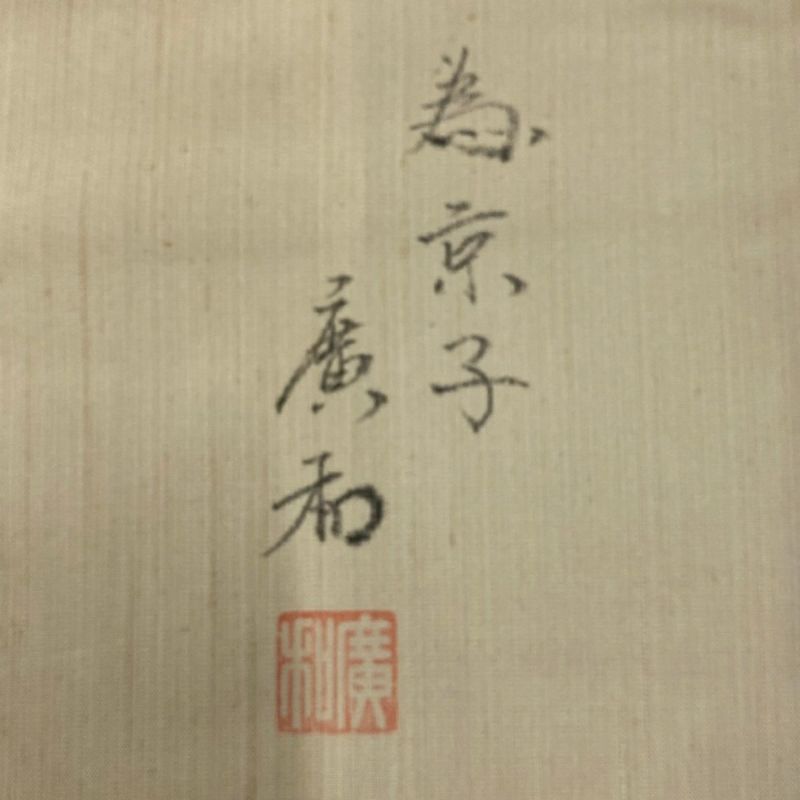 為京子
廣和
廣和